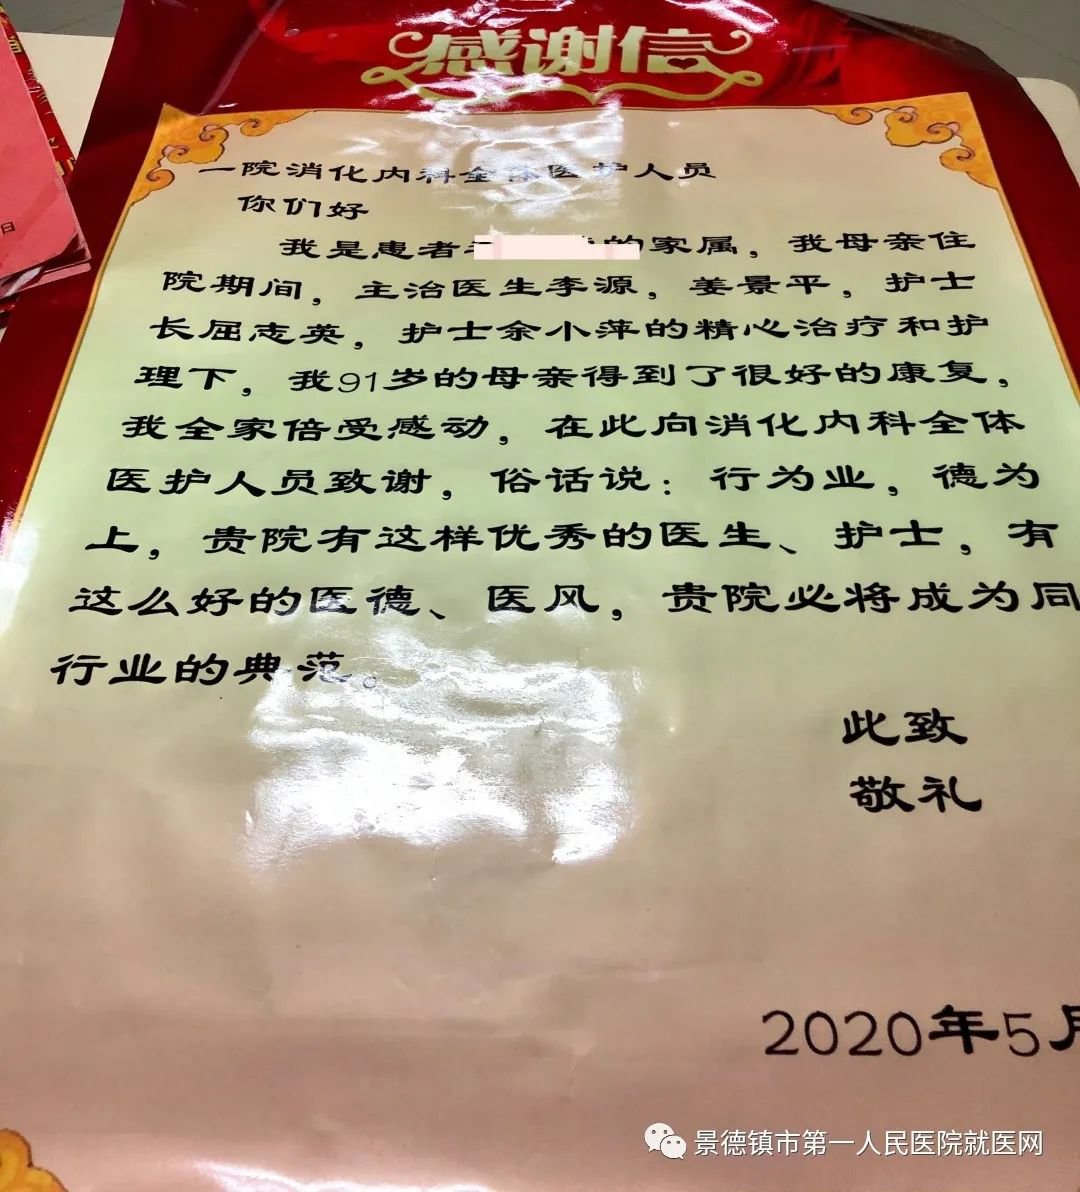 感谢信
一院消化内科全体医护人员
你们好
我是患者 的家属，我母亲住
院期间，主治医生李源，姜景平，护士
长屈志英，护士余小萍的精心治疗和护
理下，我91岁的母亲得到了很好的康复，
我全家倍受感动，在此向消化内科全体
医护人员致谢，俗话说：行为业，德为
上，贵院有这样优秀的医生、护士，有
这么好的医德、医风，贵院必将成为同
行业的典范。
此致
敬礼
2020年5月
日
景德镇市第一人民医院就医网